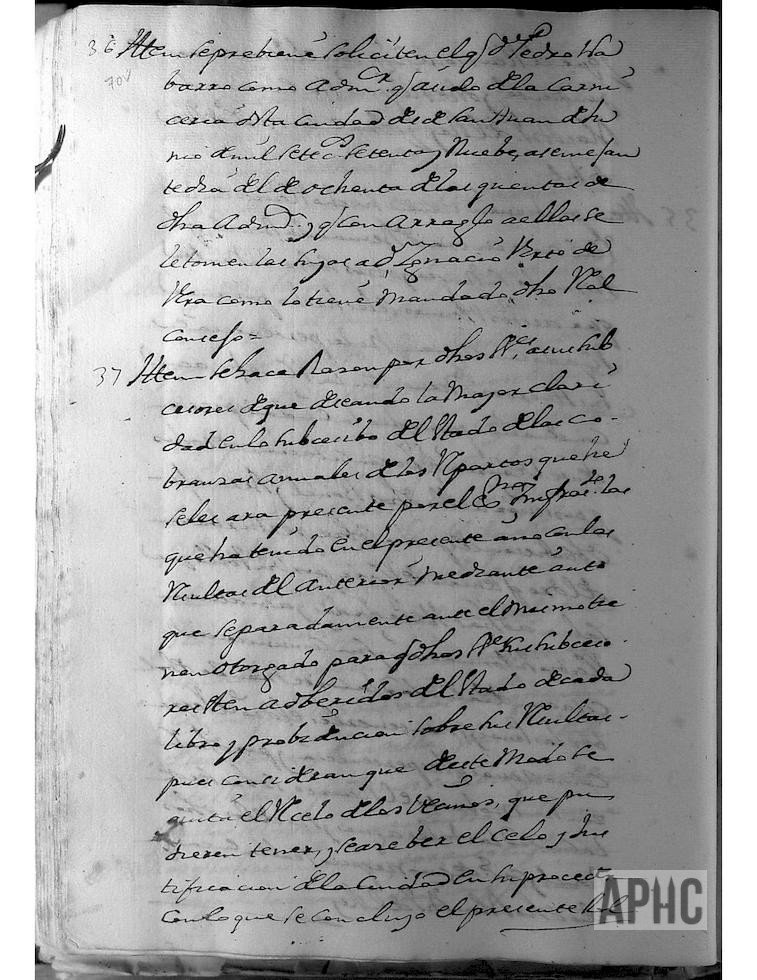 36 Ittem se prebiene soliciten el qe Dn Pedro Na
70v
barro como Admor. q asido de la Carni
ceria desta Ciudad desde San Juan de Ju
nio de mil setecos. setenta y Nuebe, a semejan
te dia del de ochenta de las quentas de
dha Admon. y q con arreglo a ellas se
le tomen las suyas a dn Ygnacio
Vera como lo tiene mandado dho Real
Consejo =
37 Ittem se hace Rason por dhos Sres. a sus sub
cesores de que deseando la mayor clari
dad en lo subcesibo del Estado de las Co-
branzas annuales de los Repartos que he
seles ara presente por el Esno. Infraesto. las
que ha tenido en el presente año con las
Resultas del anterior mediante auto
que separadamente ante el mismo tie
nen otorgado para q dhos Sres. sus subceso-
res esten adberidos del Estado de cada
libro y probidencien sobre sus Resultas-
pues consideran que de este Modo se
quita el Recelo de los Vecinos, que pu
dieren tener, y se a de ber el Celo y Jus
tificacion de la Ciudad en su proceder
Con lo que se concluyo el presente
APHC